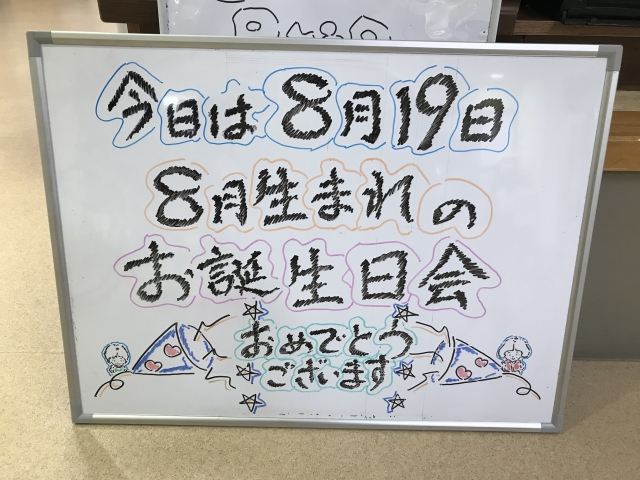 今日は8月19日
8月生まれの
お誕生日会
おめでとう
ございます